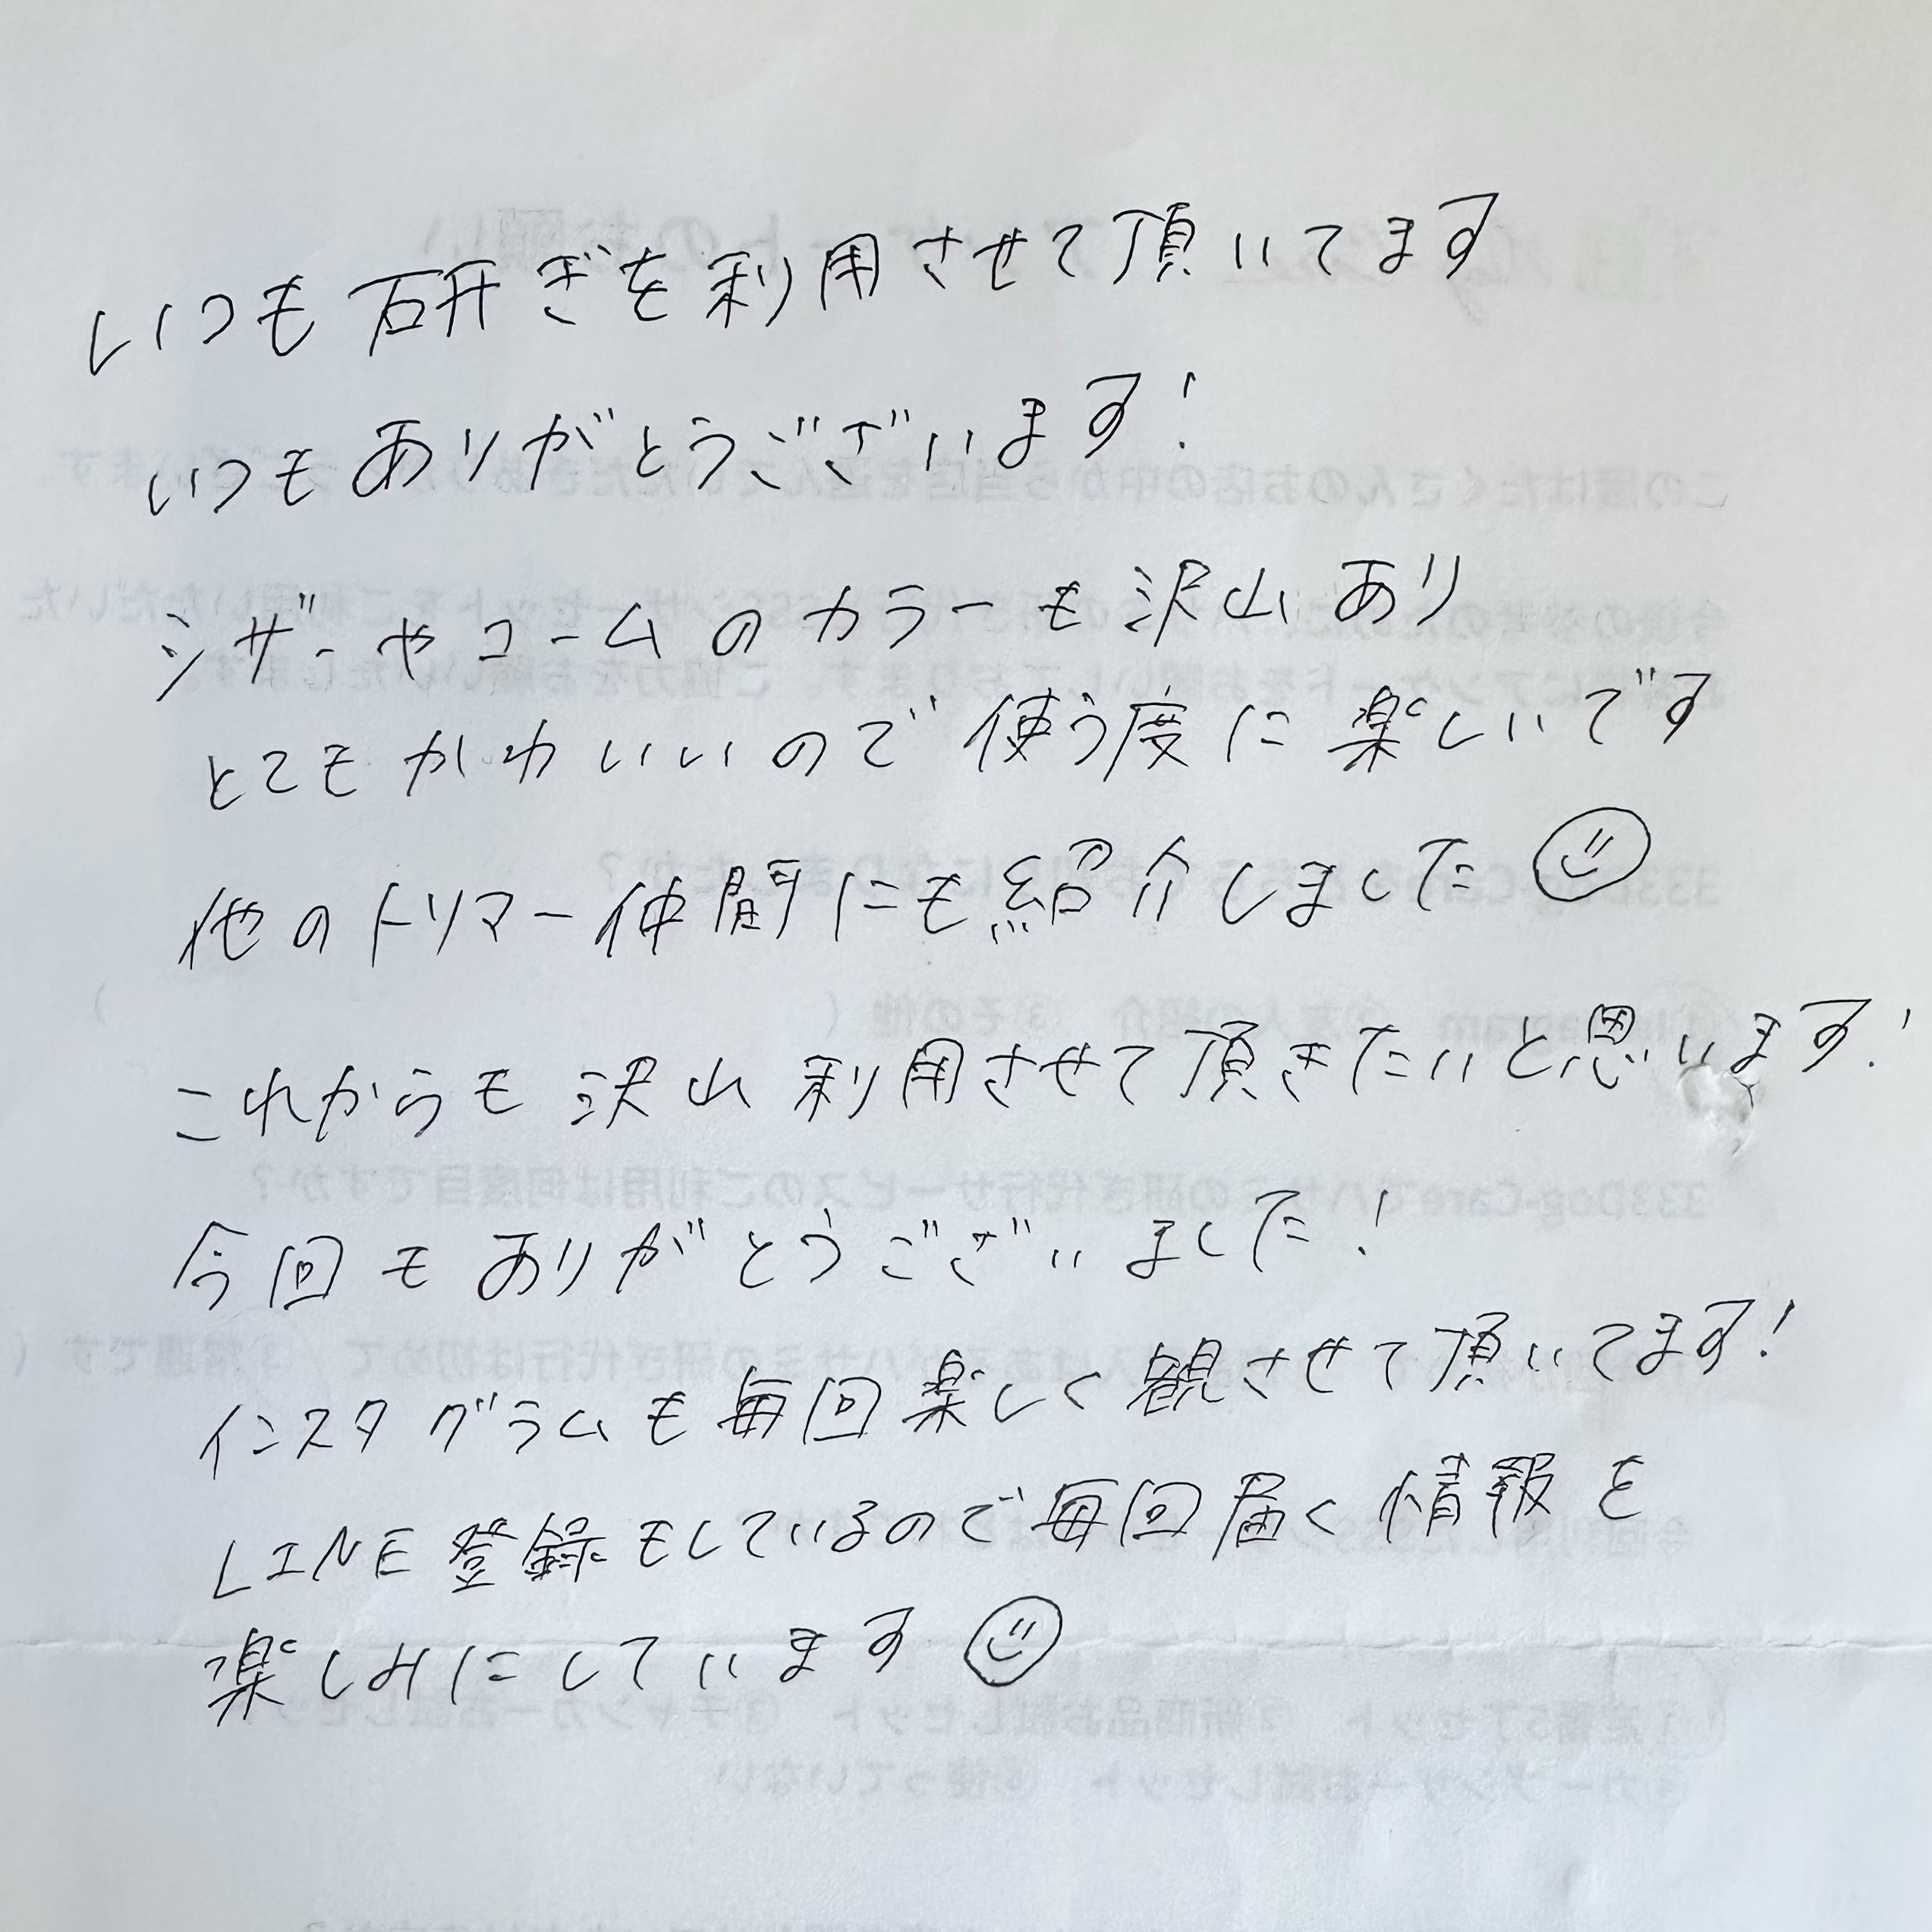 いつも研ぎを利用させて頂いてます
いつもありがとうございます!
シザーやコームのカラーも沢山あり
とてもかわいいので使う度に楽しいです
他のトリマー仲間にも紹介しました
これからも沢山利用させて頂きたいと思います!
今回もありがとうございました!
インスタグラムも毎回楽しく観させて頂いてます!
LINE登録もしているので毎回届く情報を
楽しみにしています